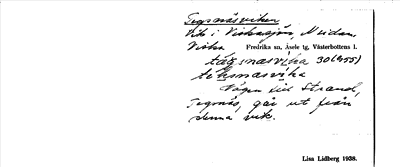 Tegsnäsviken
Vik i Viskasjön, Meidan,
Viska Fredrika sn, Åsele tg, Västerbottens l.
tägsnasvika 30(955)
teksnasvika
Vägen till Strand,
Tegsnäs, går ut från
denna vik.
Lisa Lidberg 1938.